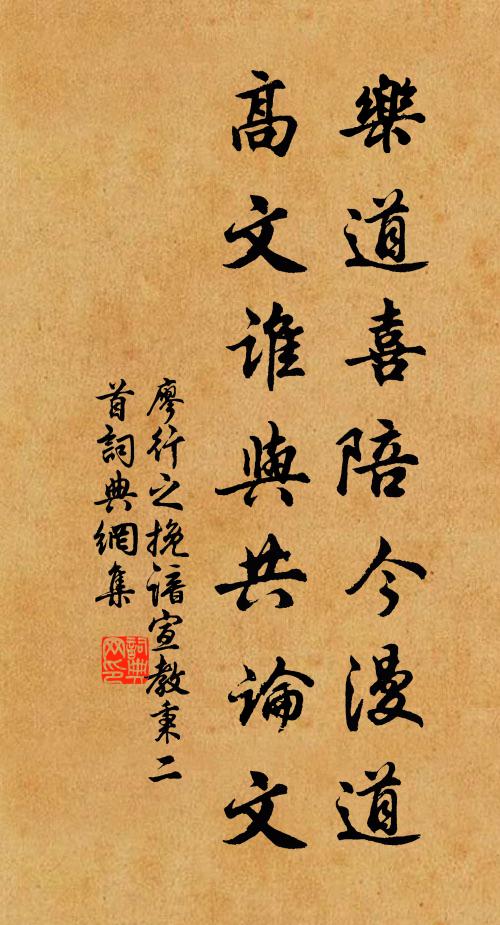 樂道喜陪今漫道
高文誰與共論文
廖行之挽諳宣教秉二
首詞典網集
詞典網印